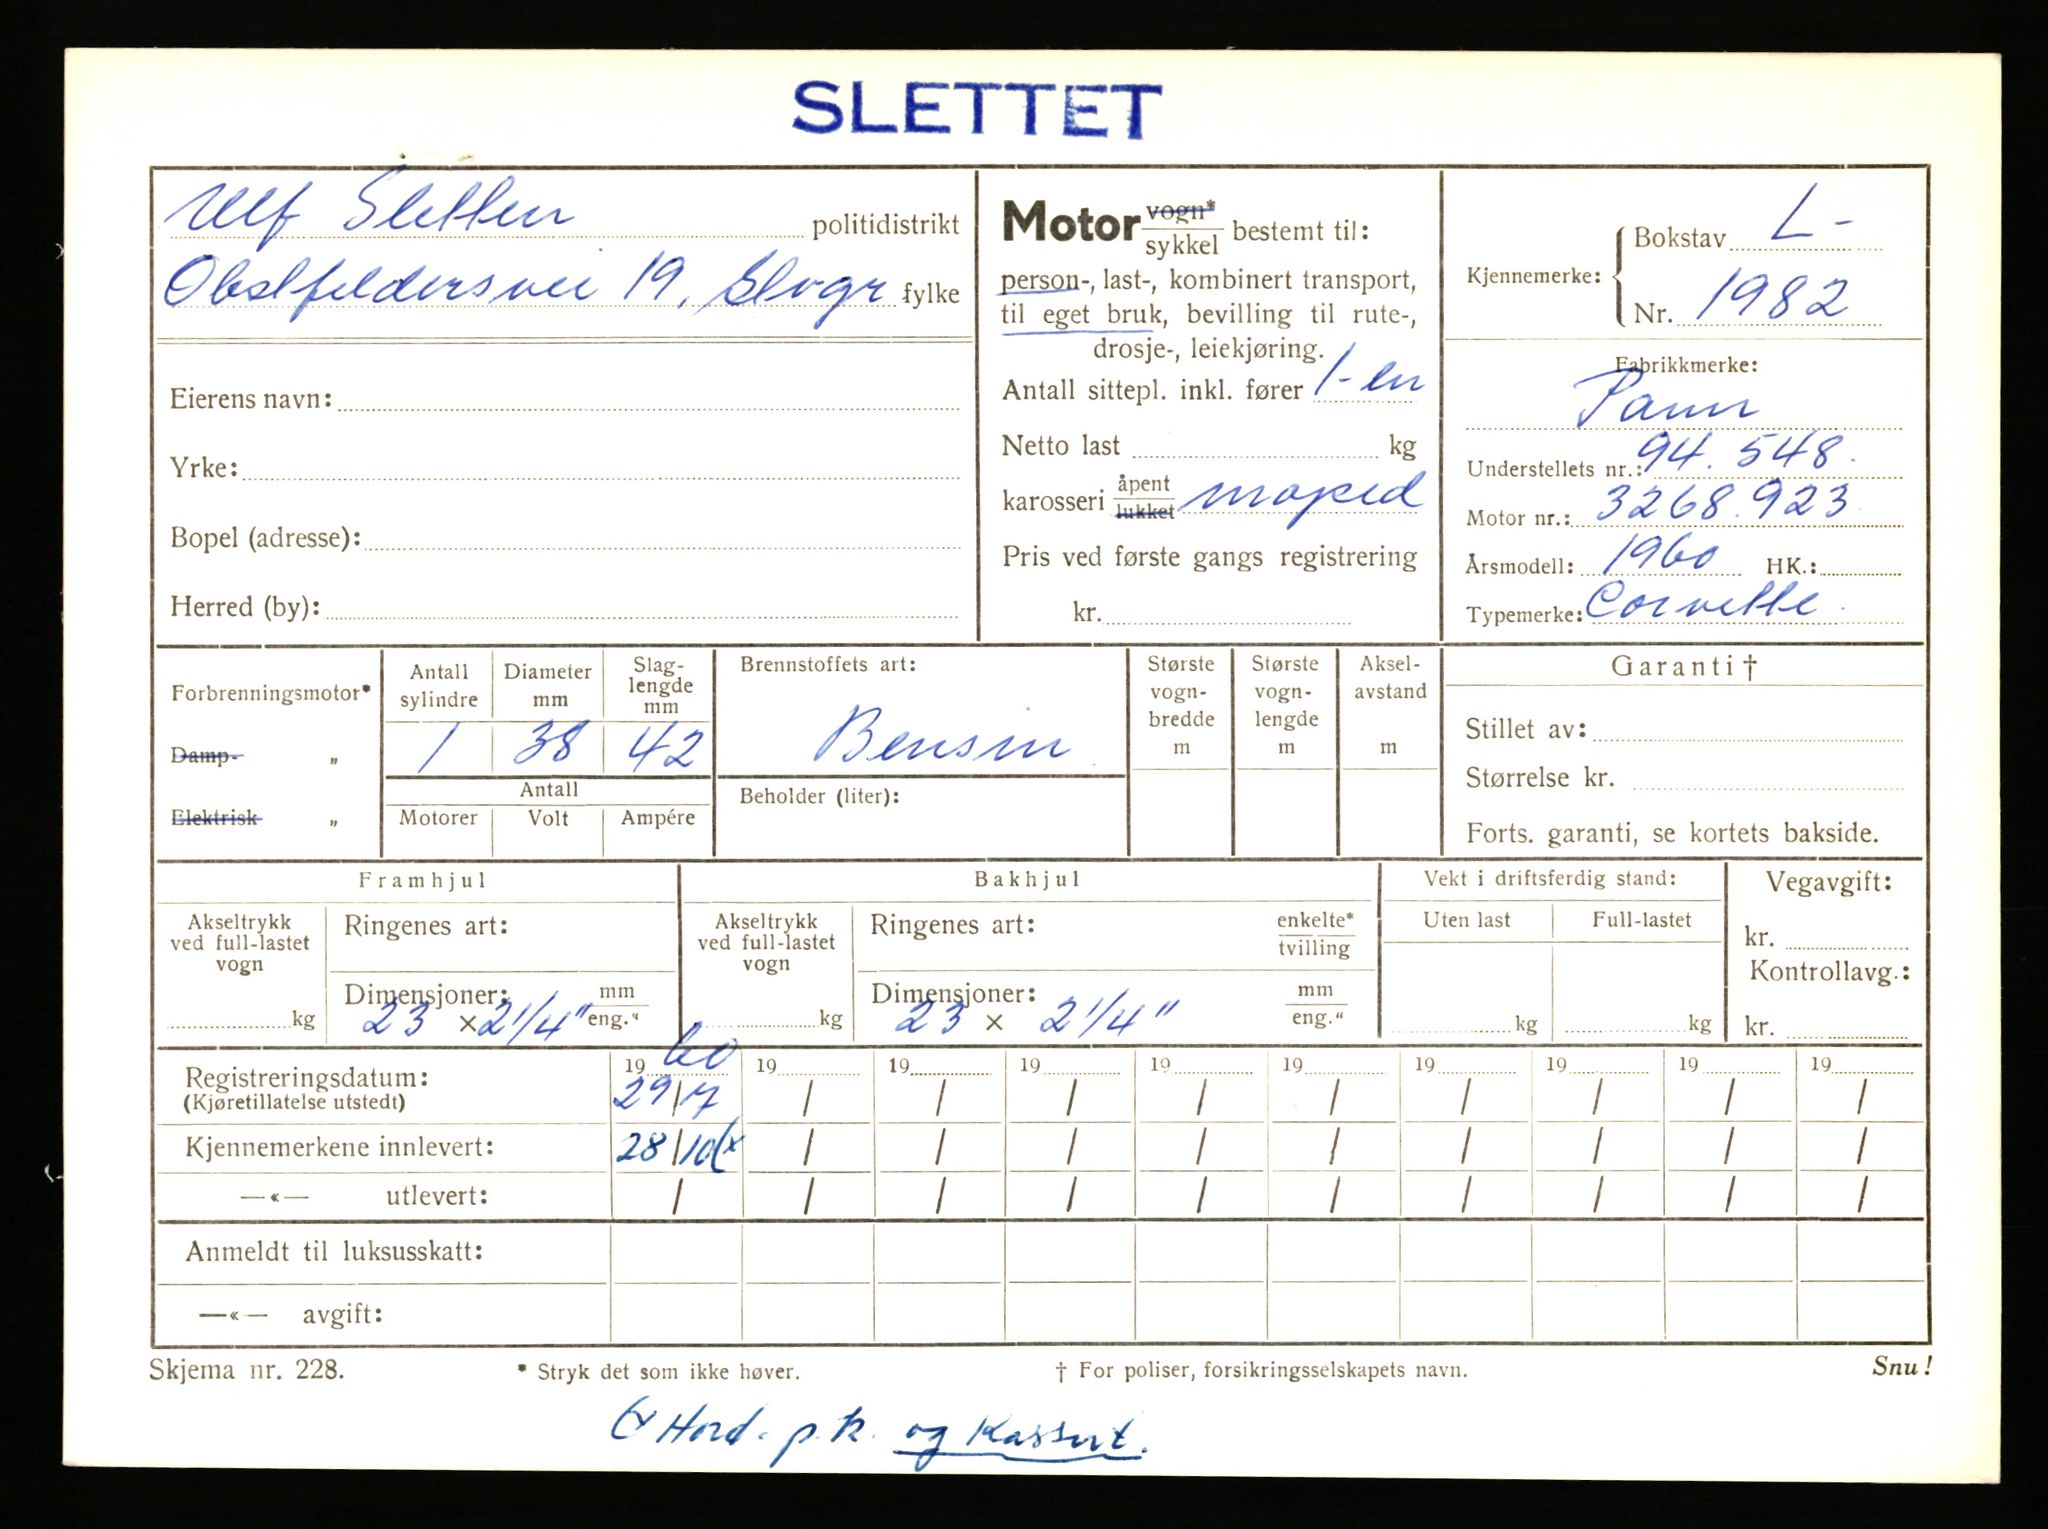 SLETTET
Ulf Sletten politidistrikt
Obstfeldersvei 19, Stvgr fylke
Eierens navn:
Yrke:
Bopel (adresse):
Herred (by):
Motor vogn* / sykkel bestemt til:
person-, last-, kombinert transport,
til eget bruk, bevilling til rute-,
drosje-, leiekjøring.
Antall sittepl. inkl. fører 1-en
Netto last kg
karosseri åpent / lukket moped
Pris ved første gangs registrering
kr.
Kjennemerke: Bokstav L-
Nr. 1982
Fabrikkmerke:
Understellets nr.: 94.548.
Motor nr.: 3268.923
Årsmodell: 1960 HK.:
Typemerke: Corvette.
Forbrenningsmotor*
Damp- „
Elektrisk „
Antall sylindre Diameter mm Slag-lengde mm
1 38 42
Antall
Motorer Volt Ampére
Brennstoffets art:
Bensin
Beholder (liter):
Største vogn-bredde m
Største vogn-lengde m
Aksel-avstand m
Garanti †
Stillet av:
Størrelse kr.
Forts. garanti, se kortets bakside.
Framhjul
Akseltrykk ved full-lastet vogn
kg
Ringenes art:
Dimensjoner: mm / eng."
23 × 2 1/4"
Bakhjul
Akseltrykk ved full-lastet vogn
kg
Ringenes art: enkelte* / tvilling
Dimensjoner: mm / eng."
23 × 2 1/4"
Vekt i driftsferdig stand:
Uten last Full-lastet
kg kg
Vegavgift:
kr.
Kontrollavg.:
kr.
1960 19 19 19 19 19 19 19 19 19
Registreringsdatum: 29/7 / / / / / / / / /
(Kjøretillatelse utstedt)
Kjennemerkene innlevert: 28/10 (x / / / / / / / / /
—«— utlevert: / / / / / / / / / /
Anmeldt til luksusskatt:
—«— avgift:
Skjema nr. 228. * Stryk det som ikke høver. † For poliser, forsikringsselskapets navn. Snu!
(x Hord. p.k. og Kassert.